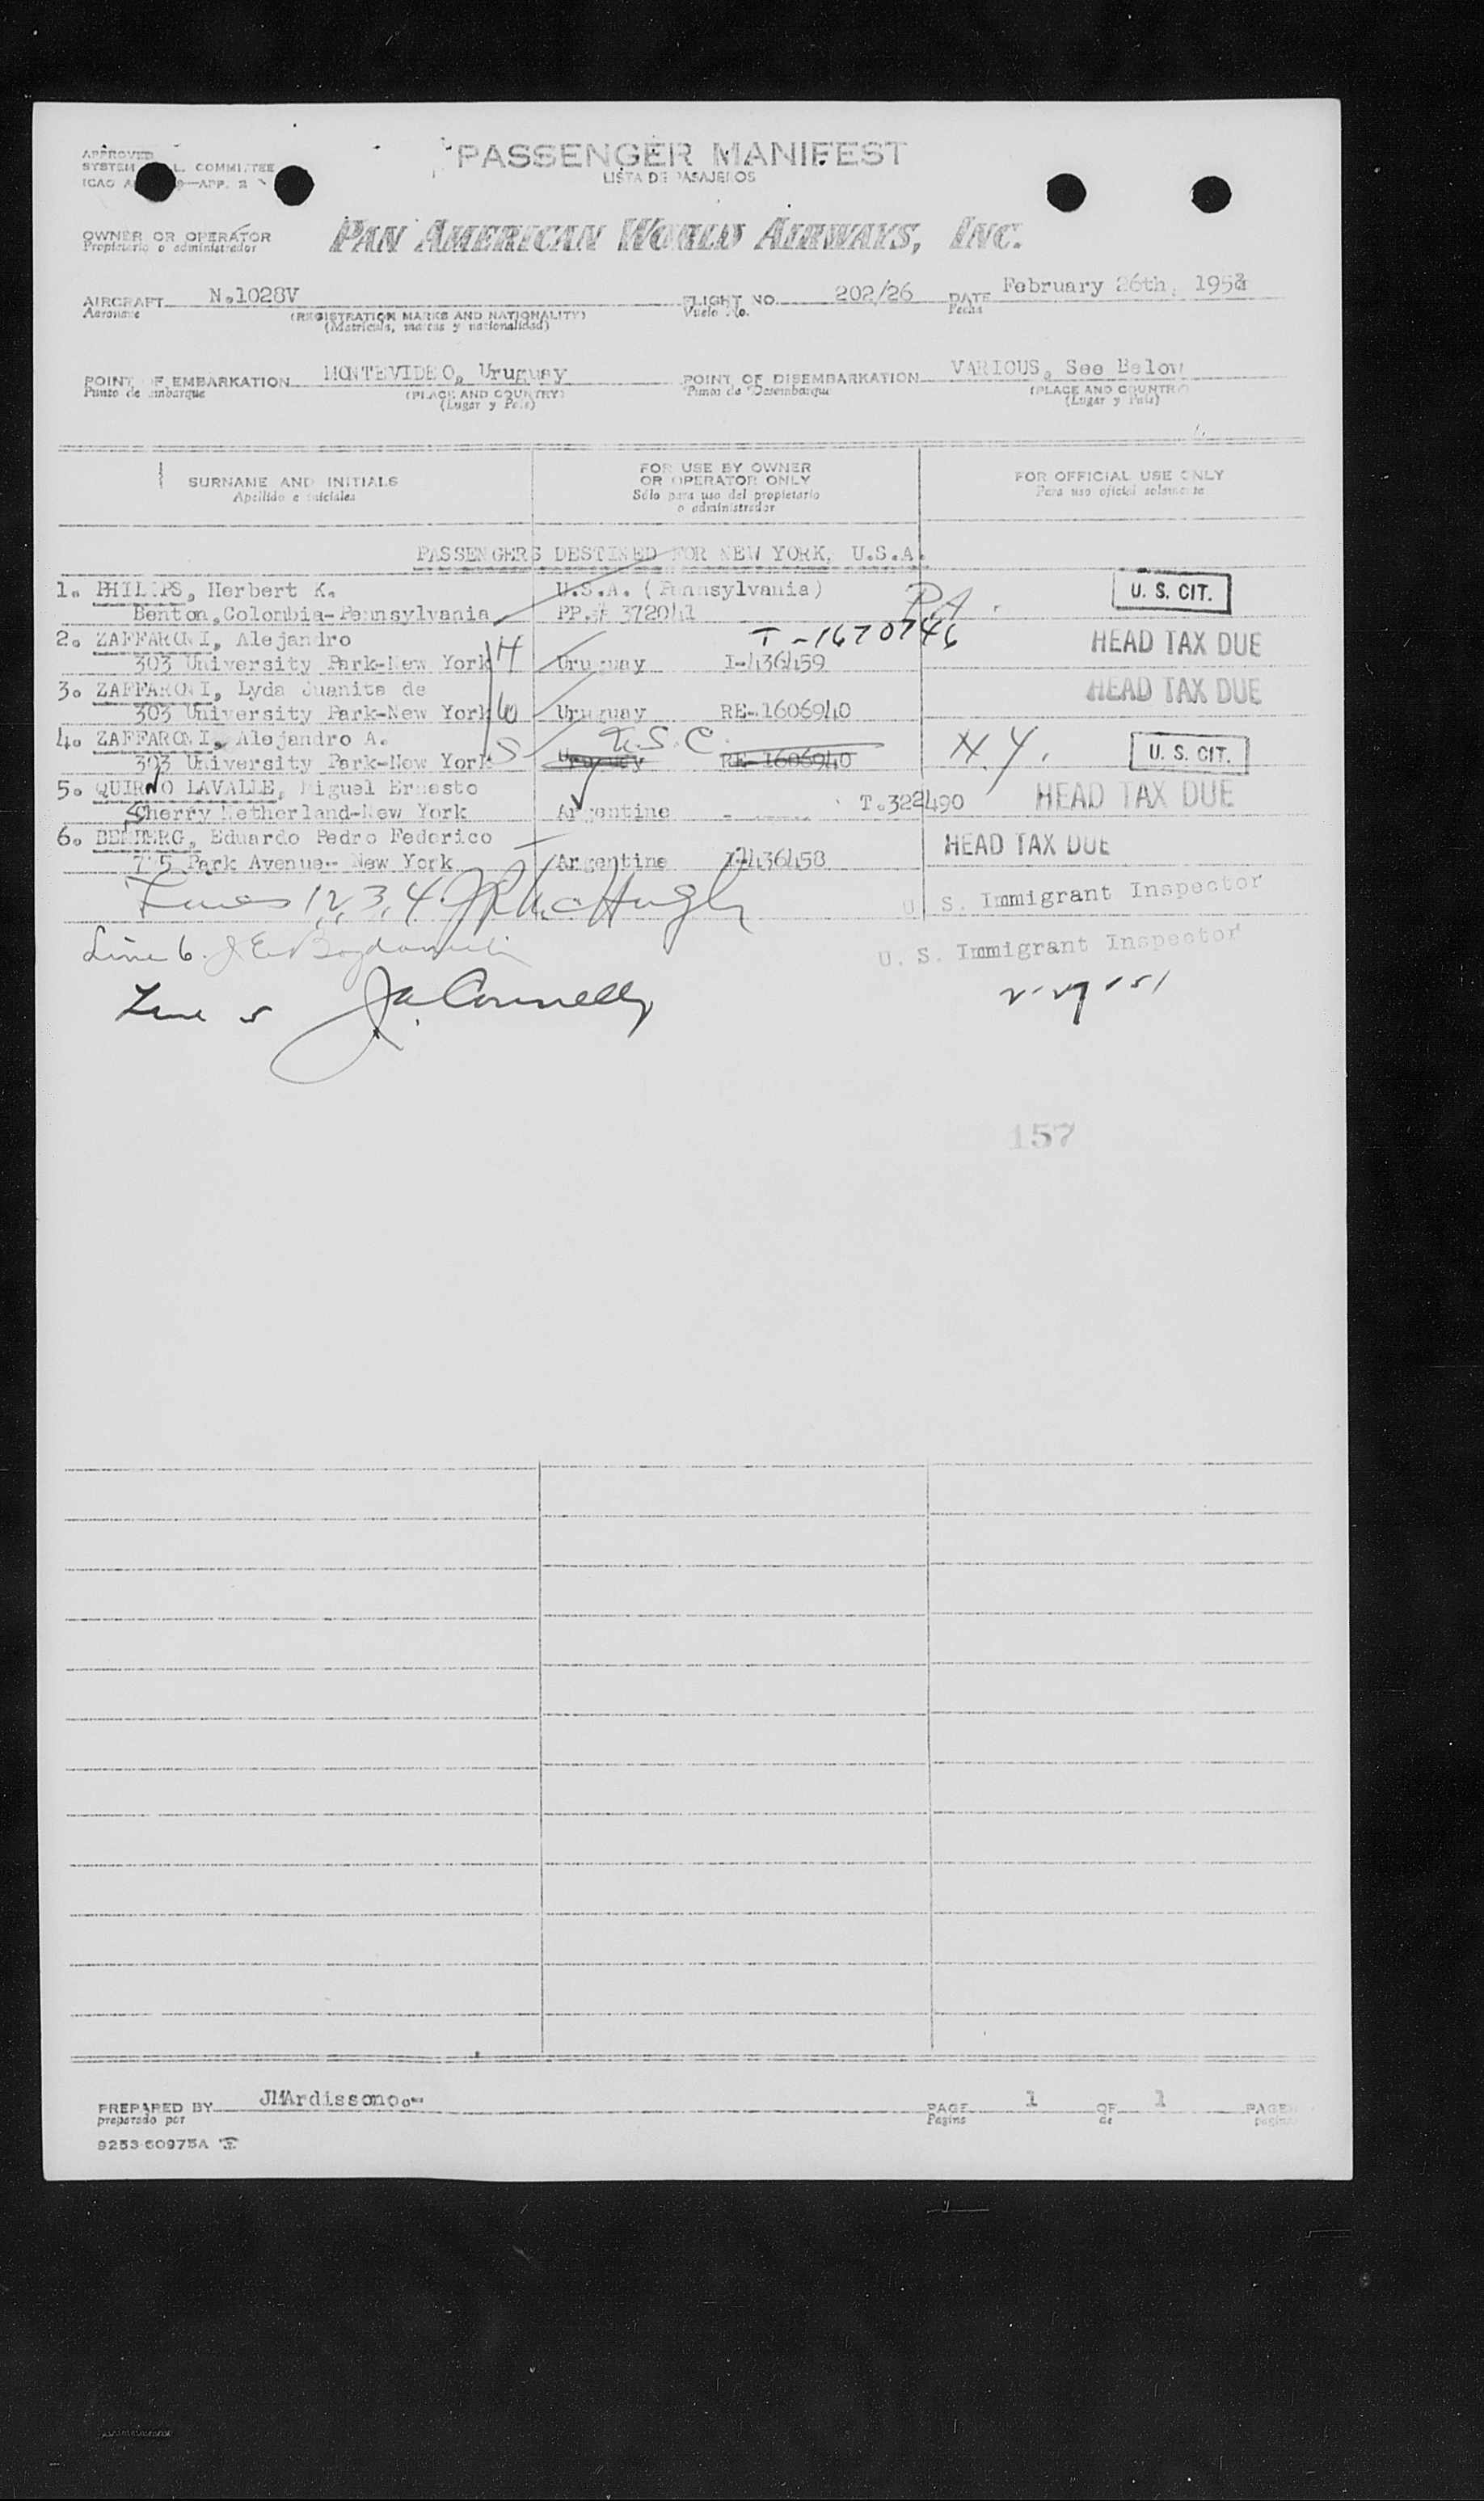 PASSENGER MANIFEST
LISTA DE PASAJEROS
APPROVED
SYSTEM L. COMMITTEE
ICAO A 9—APP. 2
OWNER OR OPERATOR PAN AMERICAN WORLD AIRWAYS, INC.
Propietario o administrador
AIRCRAFT N.1028V FLIGHT NO. 202/26 DATE February 26th, 195
Aeronave (REGISTRATION MARKS AND NATIONALITY) Vuelo No. Fecha
(Matricula, marcas y nacionalidad)
POINT OF EMBARKATION MONTEVIDEO, Uruguay POINT OF DISEMBARKATION VARIOUS, See Below
Punto de embarque (PLACE AND COUNTRY) Punto de Desembarque (PLACE AND COUNTRY)
(Lugar y País) (Lugar y País)
SURNAME AND INITIALS FOR USE BY OWNER OR OPERATOR ONLY FOR OFFICIAL USE ONLY
Apellido e iniciales Sólo para uso del propietario o administrador Para uso oficial solamente
PASSENGERS DESTINED FOR NEW YORK, U.S.A.
1. PHILIPS, Herbert K. U.S.A. (Pennsylvania) PA. U. S. CIT.
Benton, Colombia-Pennsylvania PP.# 372041
2. ZAFFARONI, Alejandro T-1670746 HEAD TAX DUE
303 University Park-New York H Uruguay I-436459
3. ZAFFARONI, Lyda Juanita de HEAD TAX DUE
303 University Park-New York W Uruguay RE-1606940
4. ZAFFARONI, Alejandro A. U.S.C. N.Y. U. S. CIT.
303 University Park-New York S Uruguay RE-1606940
5. QUIRNO LAVALLE, Miguel Ernesto HEAD TAX DUE
Sherry Netherland-New York Argentine T.322490
6. BEMBERG, Eduardo Pedro Federico HEAD TAX DUE
775 Park Avenue-- New York Argentine I-436458
Lines 1,2,3,4 McHugh U. S. Immigrant Inspector
Line 6. U. S. Immigrant Inspector
Line 5 J.A. Connelly 2-27-51
157
PREPARED BY JMArdissono.- PAGE 1 OF 1 PAGES
preparado por Pagina de paginas
9253 60975A